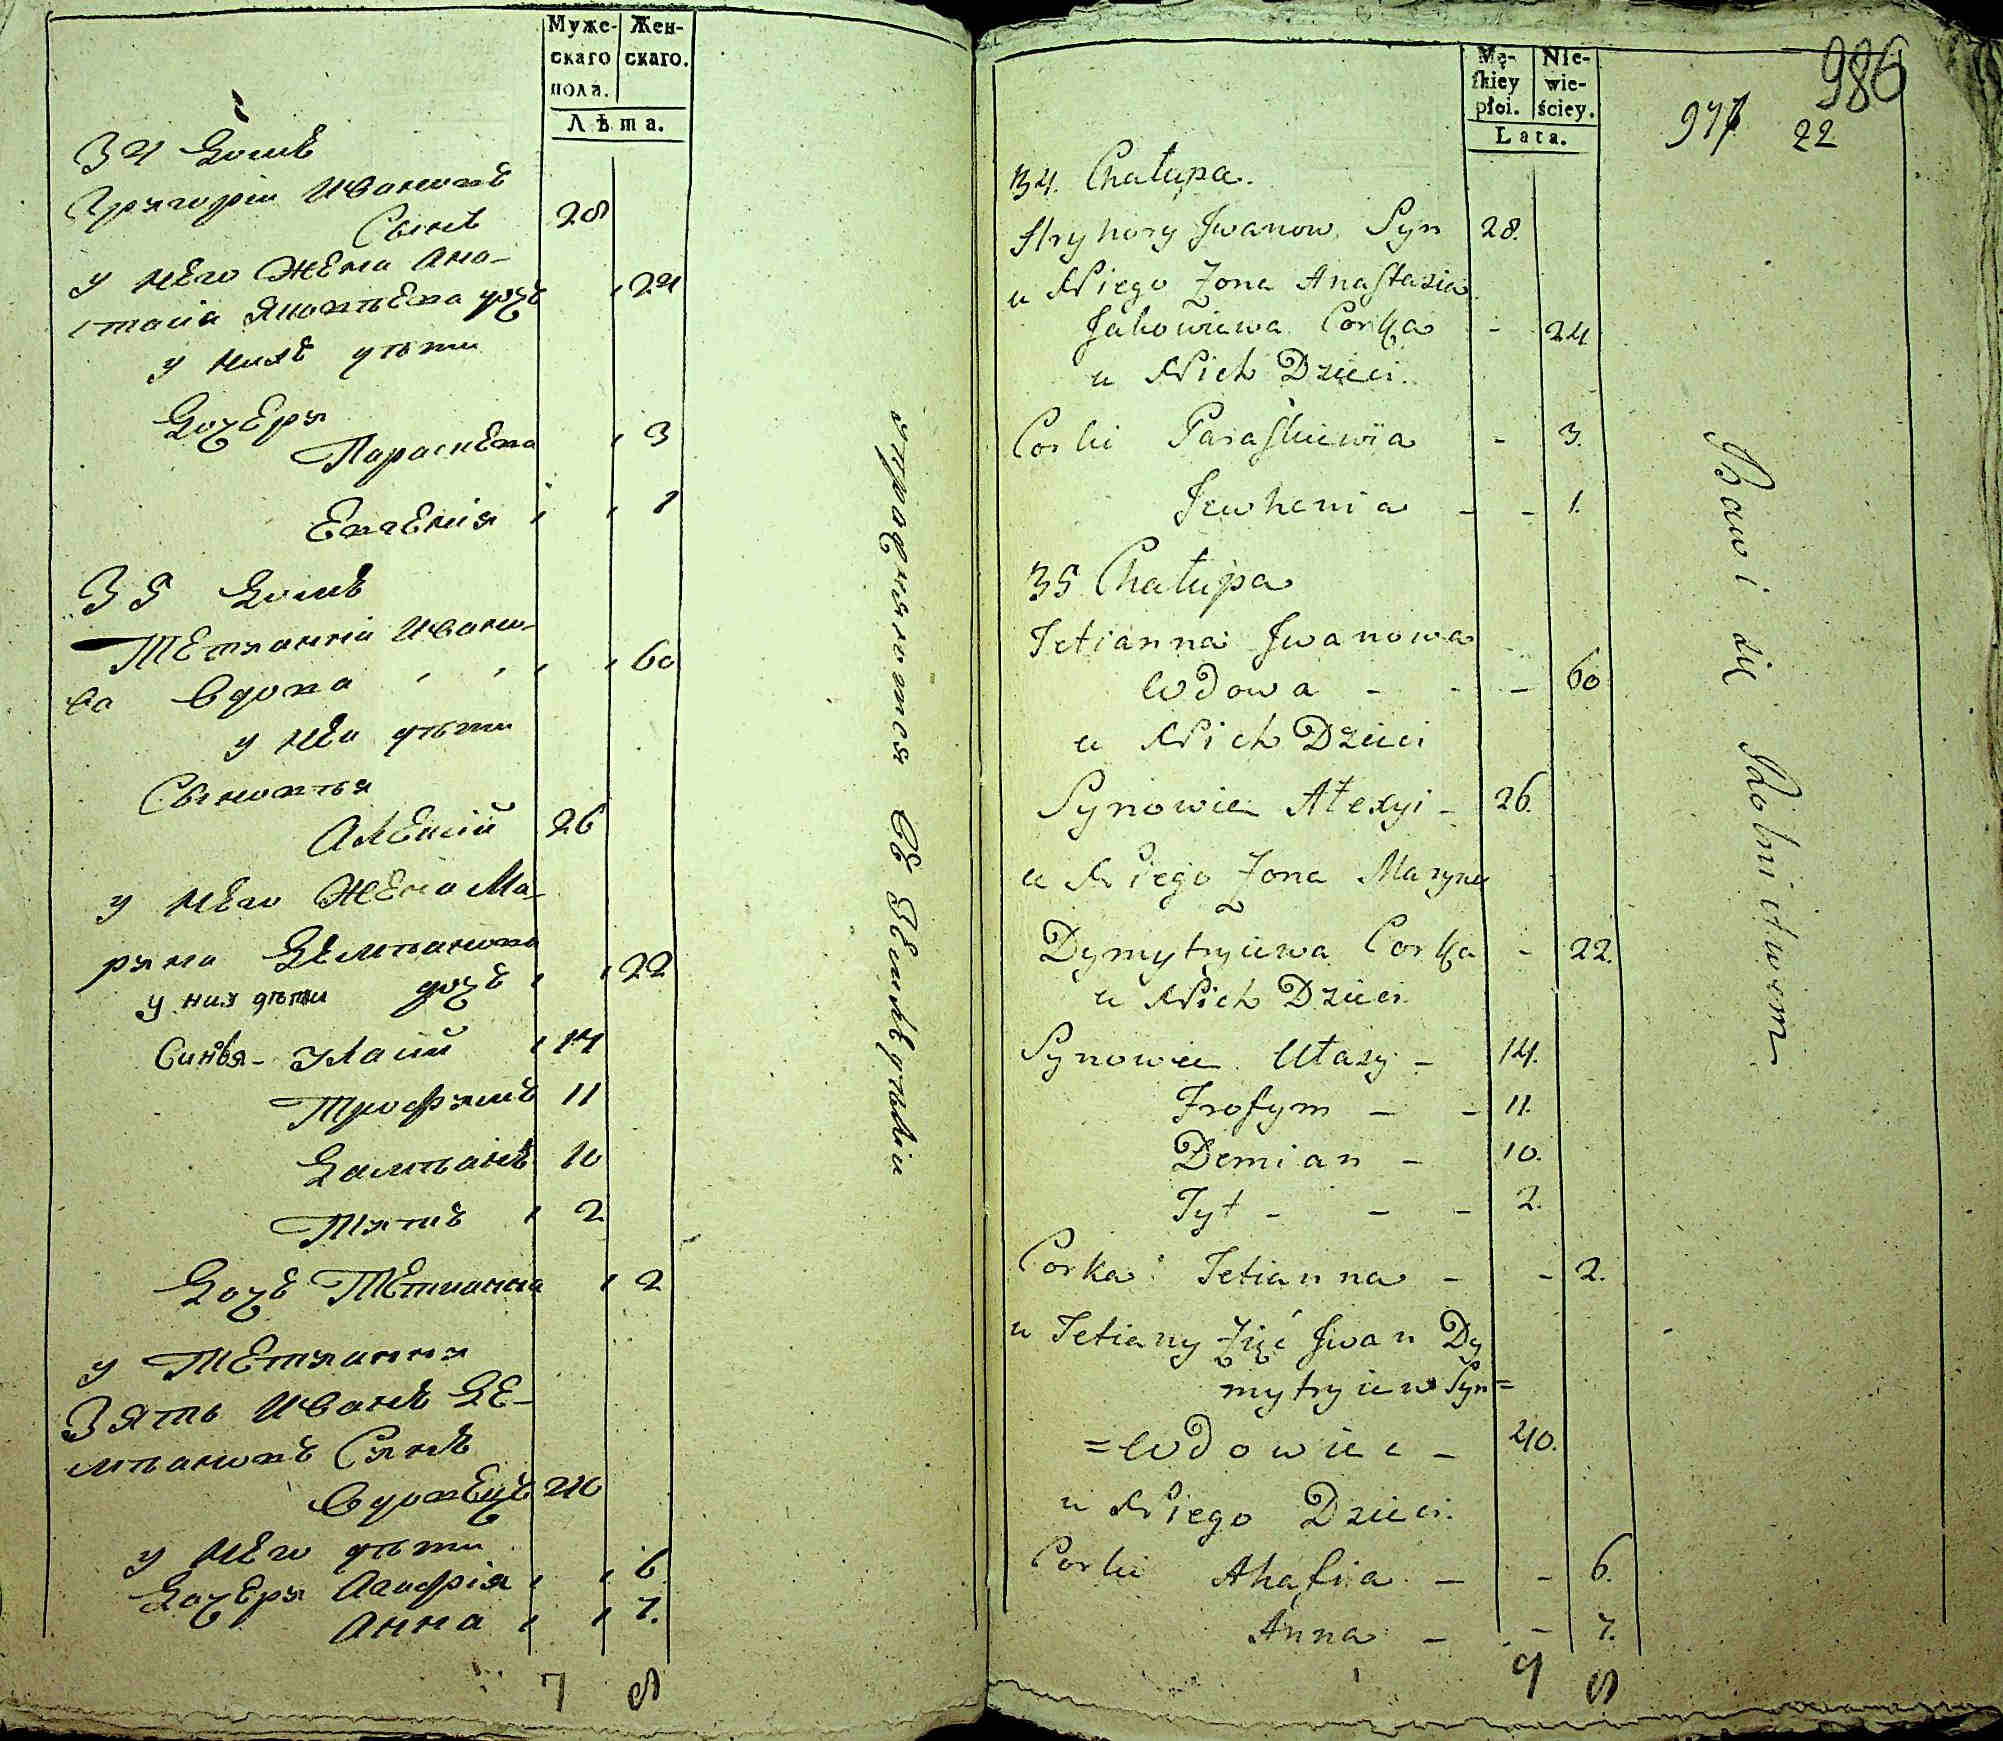 Муже-
скаго
пола.
Жен-
скаго.
Лѣта.
34 Домъ
Григорiи Ивановъ
Сынъ 28
у него жена Ана-
стасiа Яковлева дочъ 24
у нихъ дѣти
Дочеры
Параскева 3
Евгенiя 1
35 Домъ
Тетяанна Ивано-
ва вдова 60
у неи дѣти
Сыновья
Алексiй 26
у него жена Ма-
рина Демянова
дочъ 22
у них дѣти
Синовя Уласiй 14
Трофимъ 11
Дамянъ 10
Титъ 2
Дочъ Тетианна 2
у Тетянны
Зять Иванъ Де-
мяновъ Сынъ
Вдовецъ 40
у него дѣти
Дочеры Агафiя 6
Анна 7.
7 8
Упражняются въ Земледѣлiи
Mę-
ſkiey
płci.
Nie-
wie-
ściey.
Lata.
986
977 22
34. Chałupa.
Hryhory Jwanow Syn 28.
u Niego Zona Anastazia
Jakowiewa Corka - 24
u Nich Dzieci.
Corki Paraskiewia - 3.
Jewhenia - - 1.
35 Chałupa
Tetianna Jwanowa
Wdowa - - - 60
u Nich Dzieci
Synowie Ałexyi - 26.
u Niego Zona Maryna
Dymytryiewa Corka - 22.
u Nich Dzieci
Synowie Ułasy - 14.
Trofym - - 11.
Demian - 10.
Tyt - - - 2.
Corka Tetianna - - 2.
u Tetiany Zięć Jwan Dy
mytryiew Syn=
=Wdowiec - 40.
u Niego Dzieci.
Corki Ahafia - - 6.
Anna - - 7.
9 8
Bawi się Rolnictwem